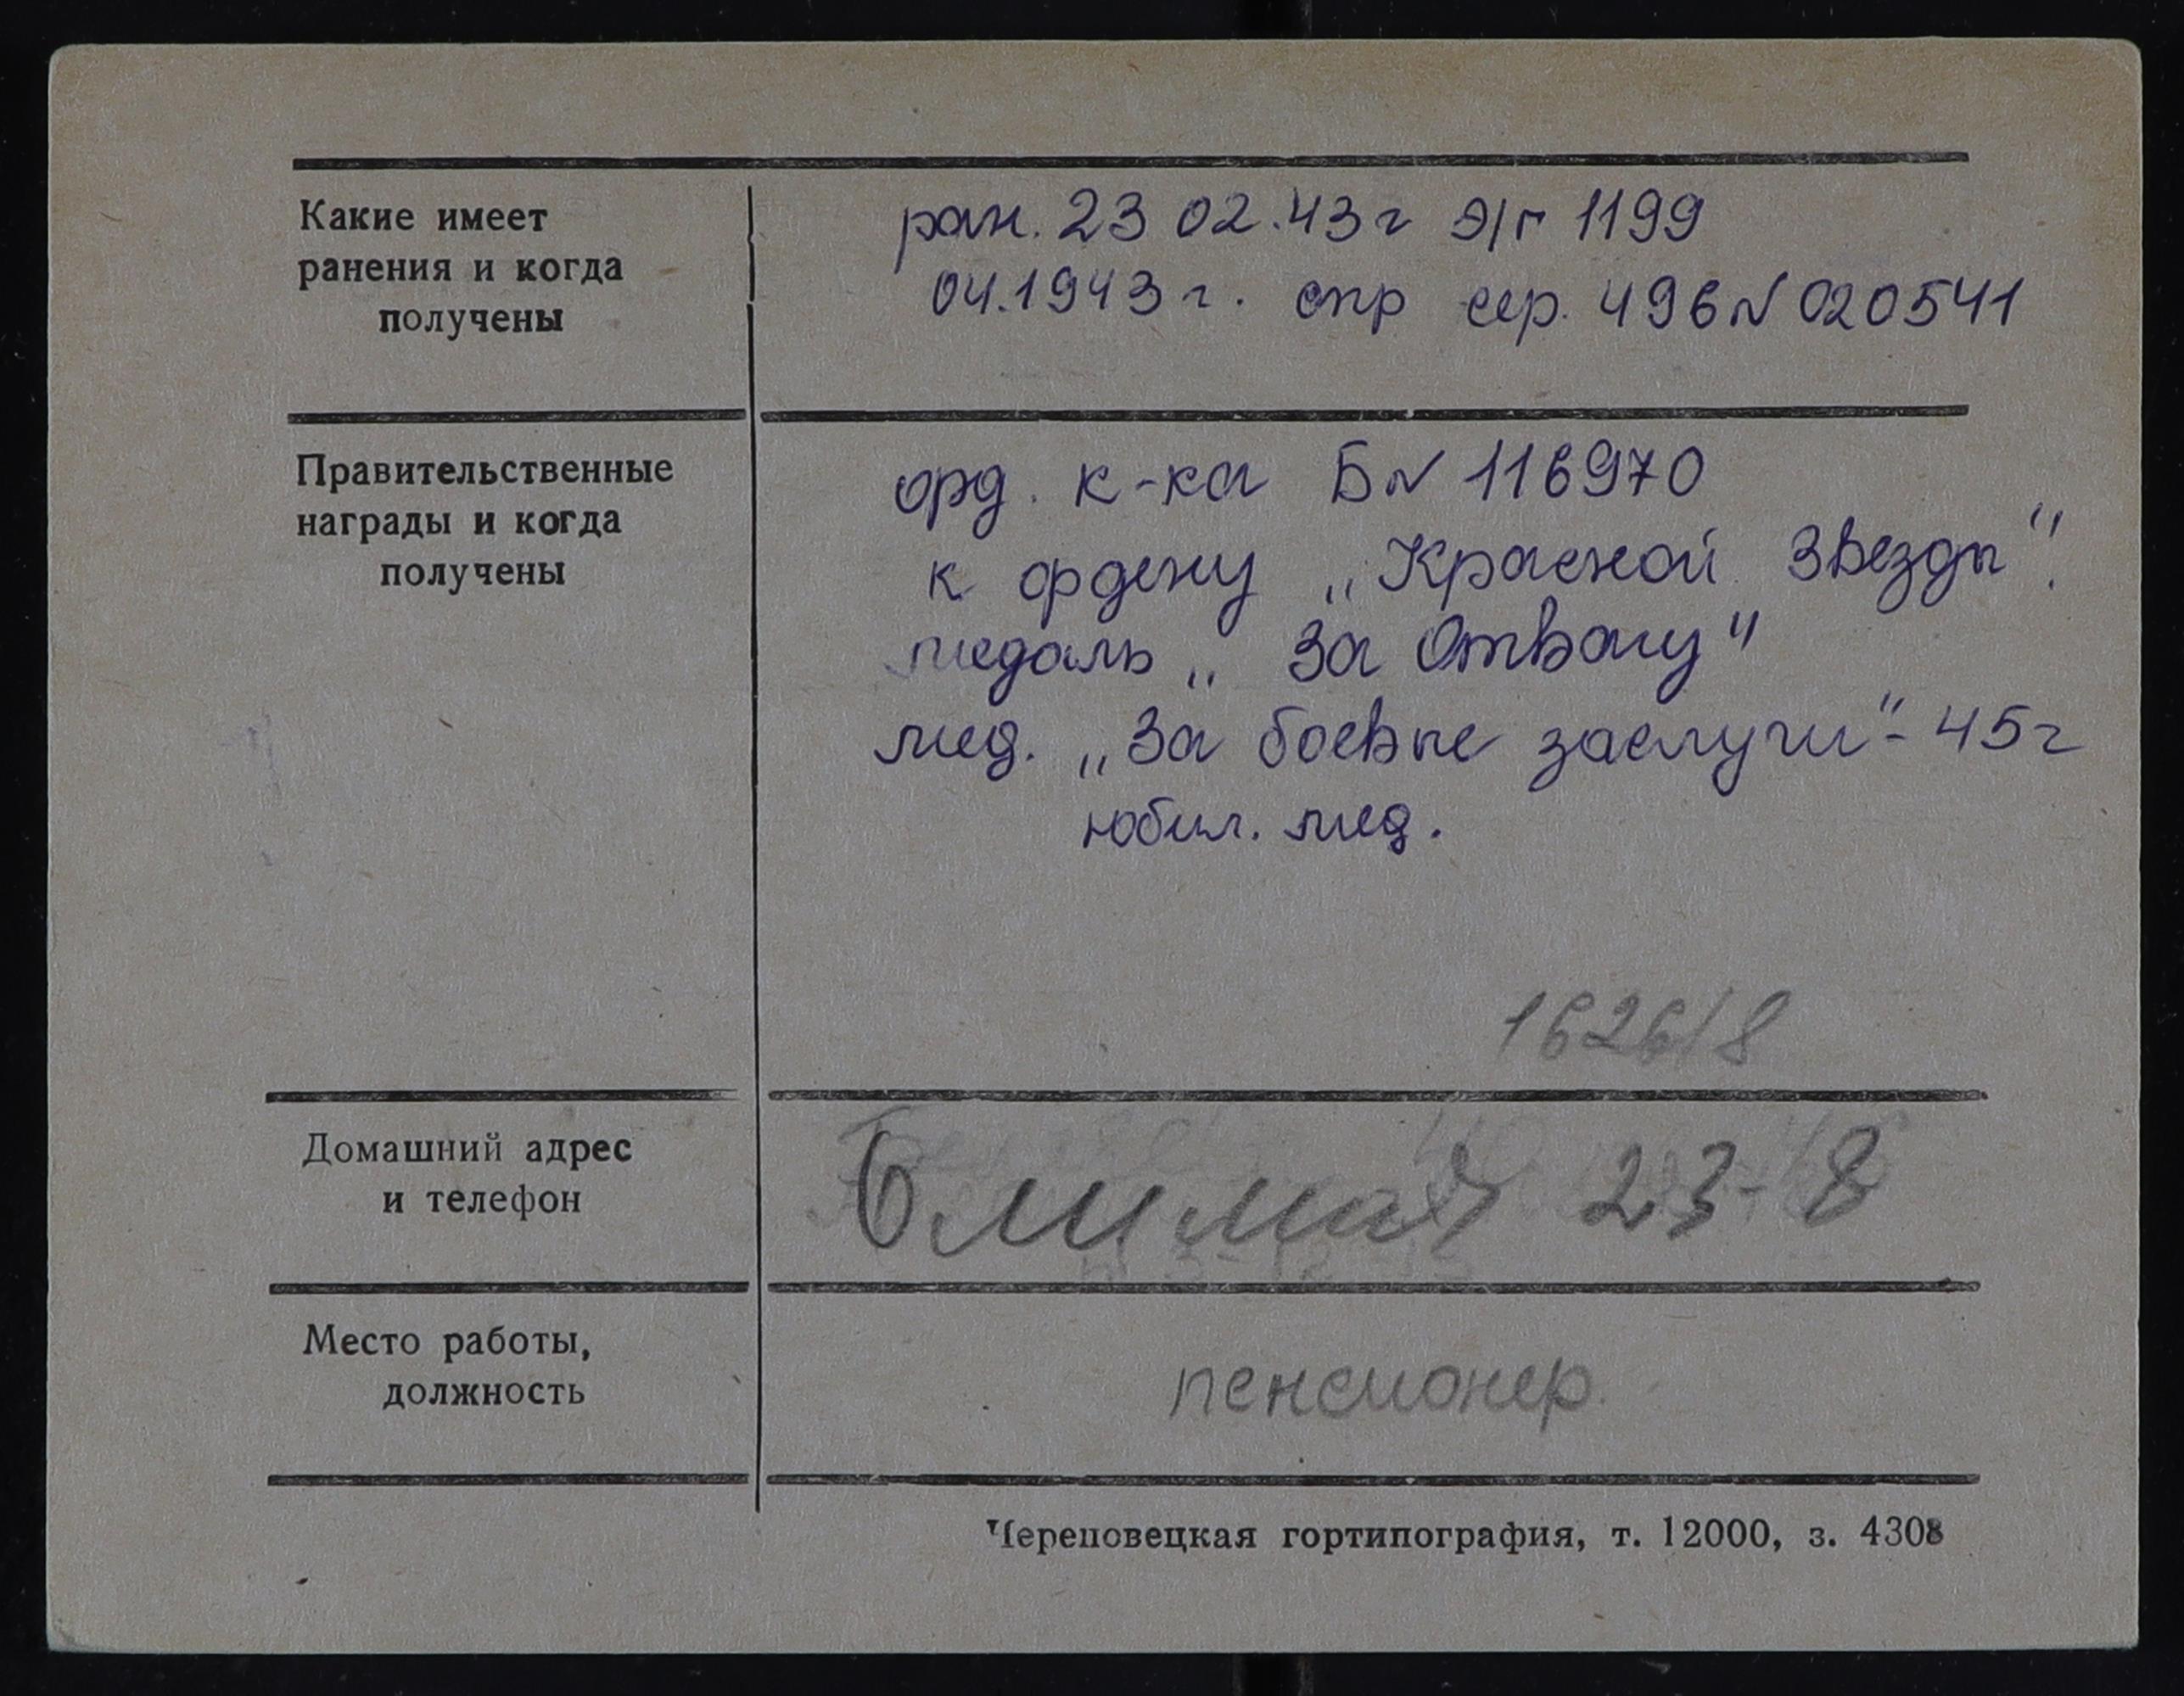 Какие имеет
ранения и когда
получены
ран. 23 02.43 г э/г 1199
04.1943 г. спр сер. 496 N 020541
Правительственные
награды и когда
получены
орд. к-ка Б N 116970
к ордену „Красной Звезды".
медаль „За Отвагу"
мед. „За боевые заслуги" - 45 г
юбил. мед.
1626/8
Домашний адрес
и телефон
23-8
Место работы,
должность
пенсионер.
Череповецкая гортипография, т. 12000, з. 4308